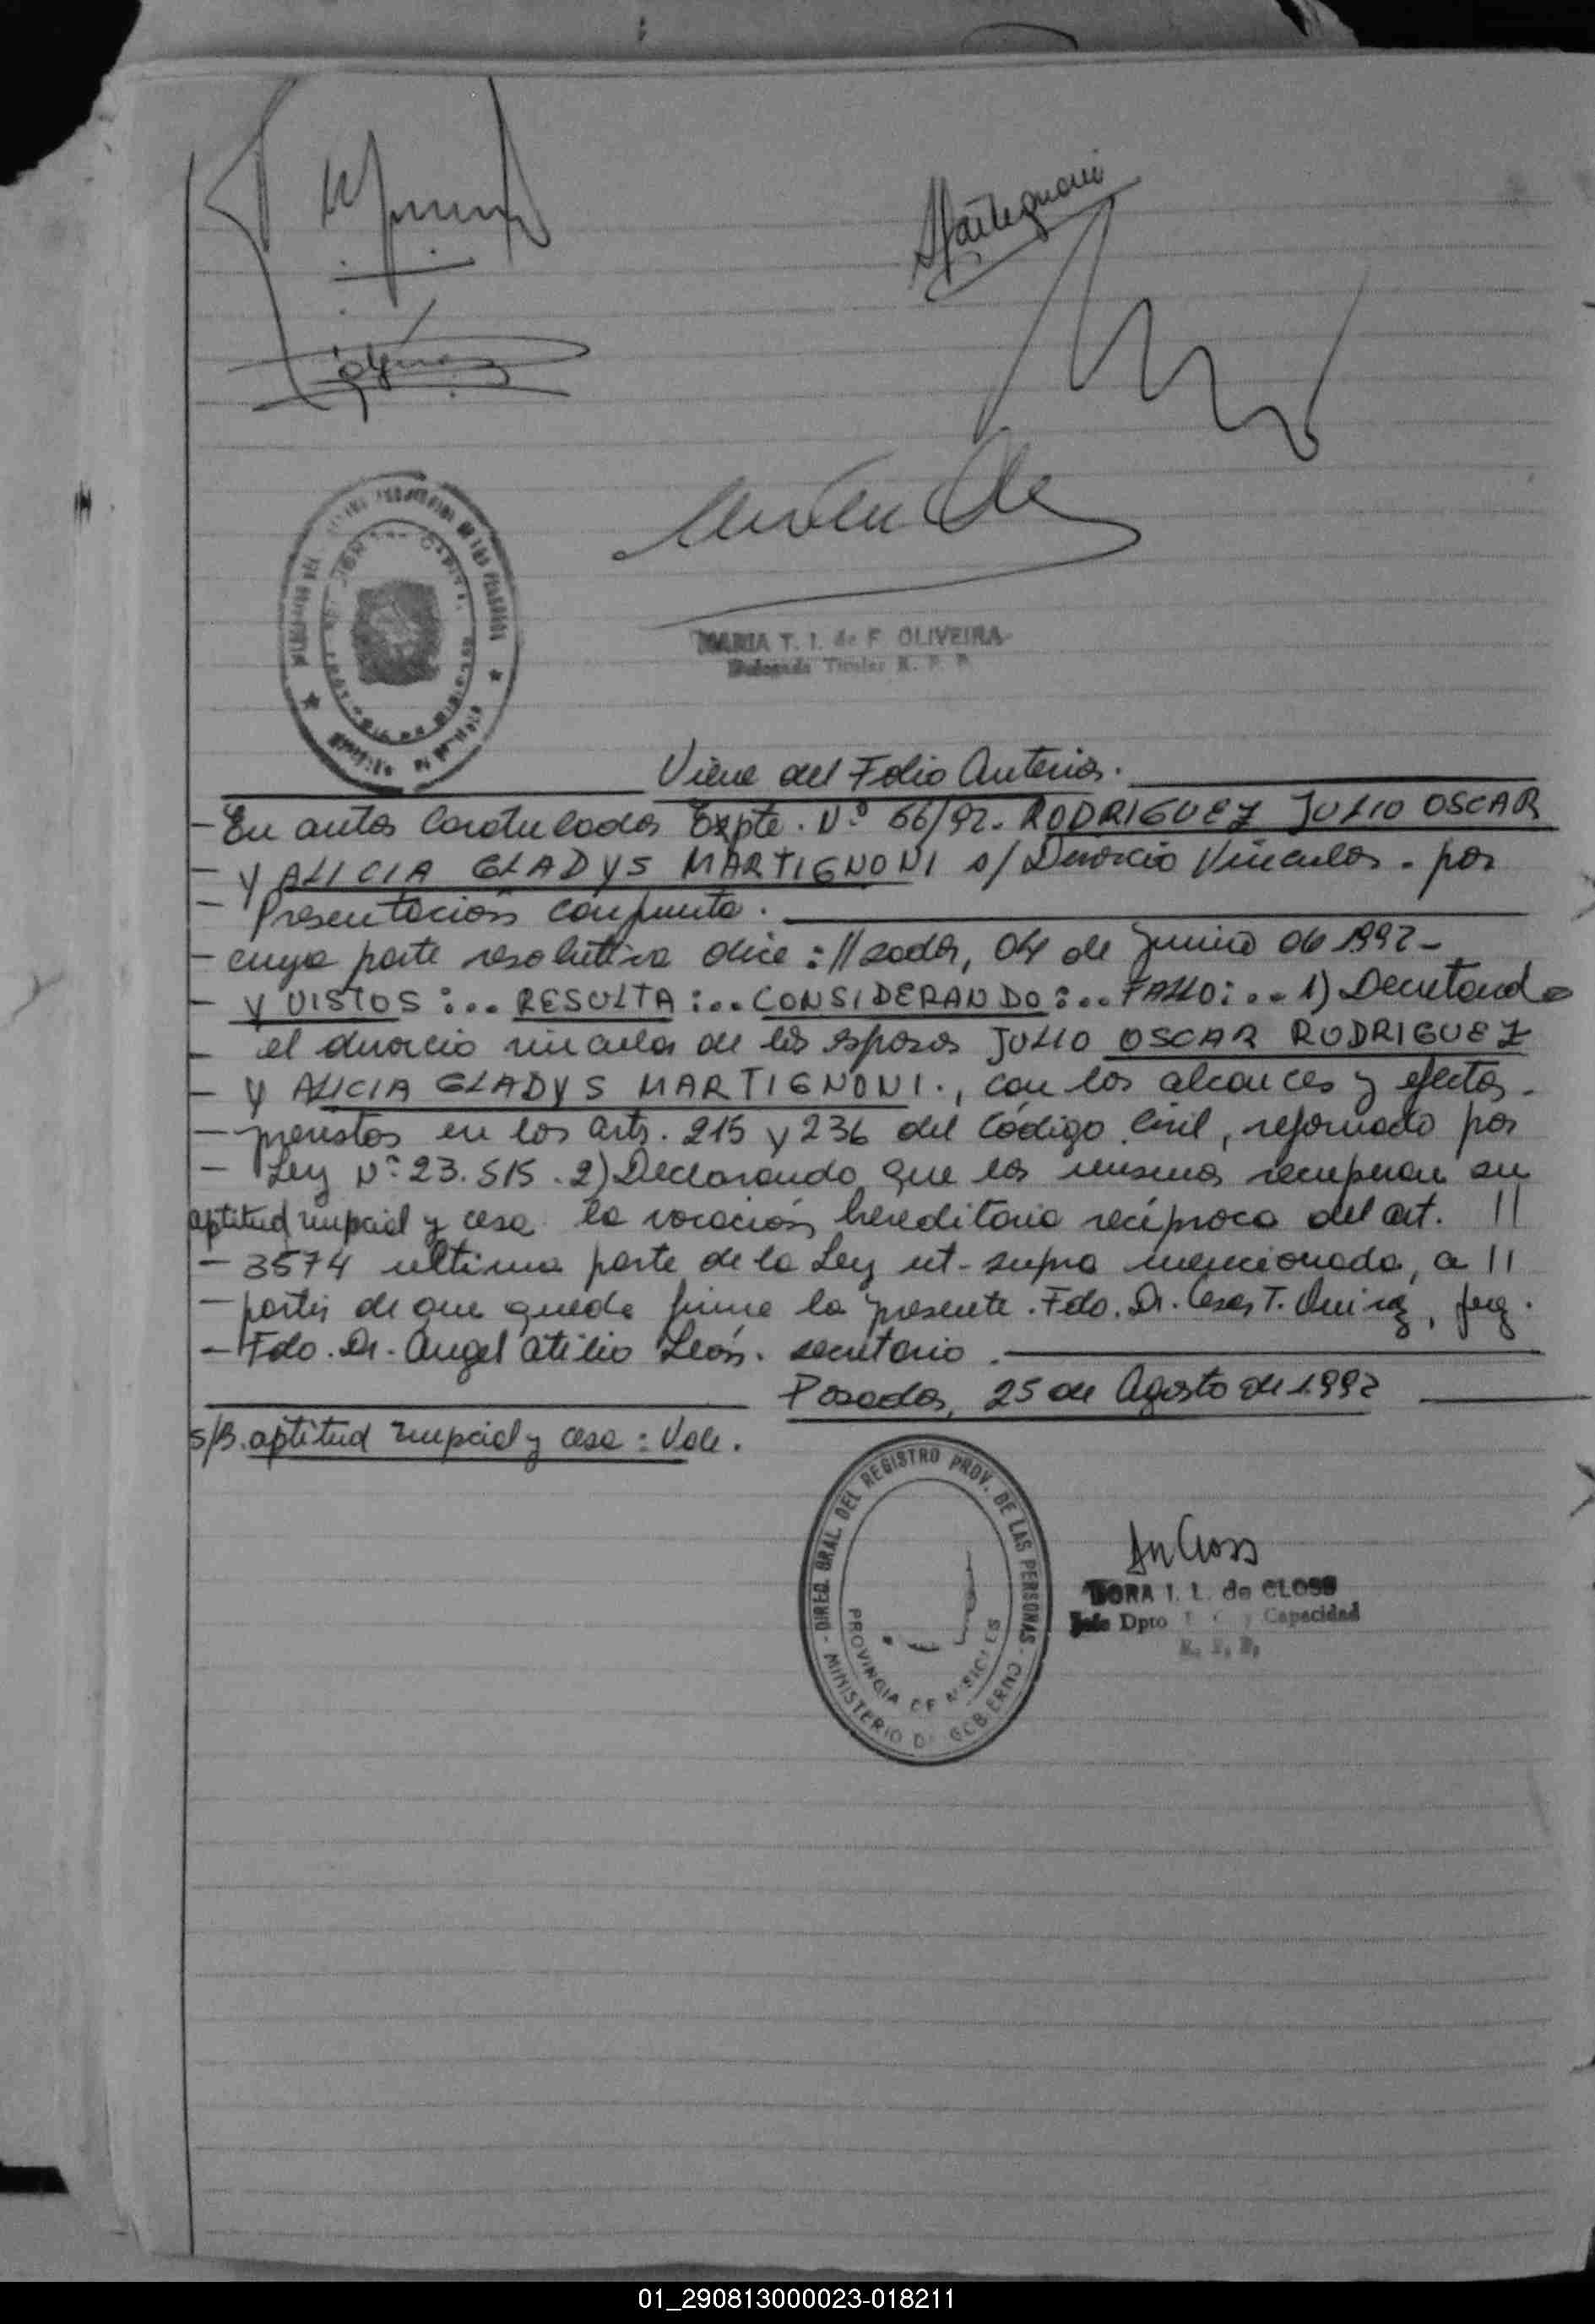 Martignoni
MARIA T. I. de F. OLIVEIRA
Delegada Titular R. P. P.
Viene del Folio Anterior.
- En autos Caratulados Expte. Nº 66/92. RODRIGUEZ JULIO OSCAR
- Y ALICIA GLADYS MARTIGNONI s/ Divorcio Vincular. por
- Presentación conjunta.
- cuya parte resolutiva dice: //sadas, 04 de Junio de 1992-
- Y VISTOS:... RESULTA:... CONSIDERANDO:... FALLO:... 1) Decretando
- el divorcio vincular de los esposos JULIO OSCAR RODRIGUEZ
- Y ALICIA GLADYS MARTIGNONI., con los alcances y efectos.
- previstos en los arts. 215 y 236 del Código Civil, reformado por
- Ley Nº 23.515. 2) Declarando que los mismos recuperan su
aptitud nupcial y cesa la vocación hereditaria recíproca del art. //
- 3574 ultima parte de la Ley ut-supra mencionada, a //
- partir de que quede firme la presente. Fdo. Dr. Cesar T. Quiroz, Juez.
- Fdo. Dr. Angel Atilio León. secretario.
Posadas, 25 de Agosto de 1992
S/B. aptitud nupcial y cesa: Vale.
DIREC. GRAL. DEL REGISTRO PROV. DE LAS PERSONAS
PROVINCIA DE MISIONES
MINISTERIO DE GOBIERNO
DORA I. L. de CLOSS
Jefe Dpto y Capacidad
R. P. P.
01_290813000023-018211